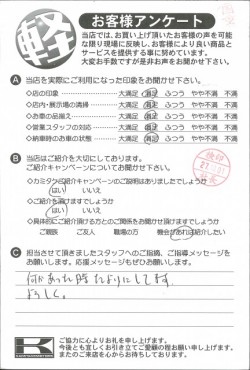 軽
お客様アンケート
当店では、お買い上げ頂いたお客様の声を可能
な限り現場に反映し、お客様により良い商品と
サービスを提供する事に努めています。
大変お手数ですが是非お声をお聞かせ下さい。
A 当店を実際にご利用になった印象をお聞かせ下さい。
◇店の印象 大満足 満足 ふつう やや不満 不満
◇店内・展示場の清掃 大満足 満足 ふつう やや不満 不満
◇お車の品揃え 大満足 満足 ふつう やや不満 不満
◇営業スタッフの対応 大満足 満足 ふつう やや不満 不満
◇納車時のお車の状態 大満足 満足 ふつう やや不満 不満
B 当店はご紹介を大切にしております。
ご紹介キャンペーンについてお聞かせ下さい。
◇カミタケ紹介キャンペーンのご説明はありましたでしょうか
はい いいえ
◇ご紹介を頂けますでしょうか
はい いいえ
◇具体的にご紹介頂ける方とのご関係をお聞かせ頂けますでしょうか
ご親族 ご友人 職場の方 機会があれば紹介したい
C 担当させて頂きましたスタッフへのご指摘、ご指導メッセージを
お願いします。応援メッセージもぜひお願いします。
何かあった時たよりにしてます。
よろしく。
K
ご協力に心よりお礼を申し上げます。
今後とも宜しくお引き立てご愛顧の程お願い申し上げます。
またのご来店を心からお待ちしております。